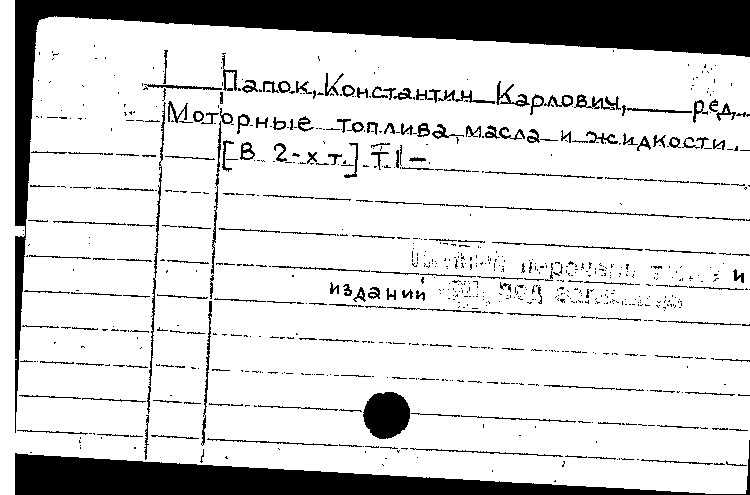 Папок, Константин Карлович, ред.
Моторные топлива, масла и жидкости.
[В 2-х т.] Т1-
и
изданий под